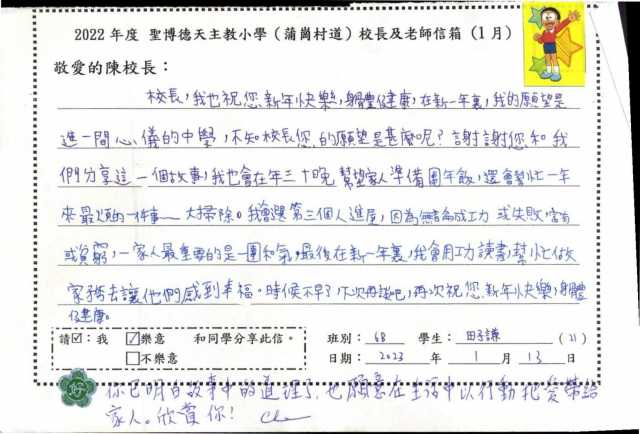 2022 年度 聖博德天主教小學（蒲崗村道）校長及老師信箱（1月）
敬愛的陳校長：
校長，我也祝您新年快樂，身體健康，在新一年裏，我的願望是
進一間心儀的中學，不知校長您的願望是甚麼呢？謝謝您和我
們分享這一個故事，我也會在年三十晚幫家人準備團年飯，還會幫忙一年
來最煩的一件事——大掃除。我會選第三個人進屋，因為無論成功或失敗，富有
或貧窮，一家人最重要的是一團和氣。最後在新一年裏，我會用功讀書，幫忙做
家務去讓他們感到幸福。時候不早了，下次再談吧，再次祝您新年快樂，身體
健康。
請☑：我 ☑樂意 和同學分享此信。
□不樂意
班別：6B 學生：田子謙 (21)
日期：2023 年 1 月 13 日
好
你已明白故事中的道理了，也願意在生活中以行動把愛帶給
家人。欣賞你！